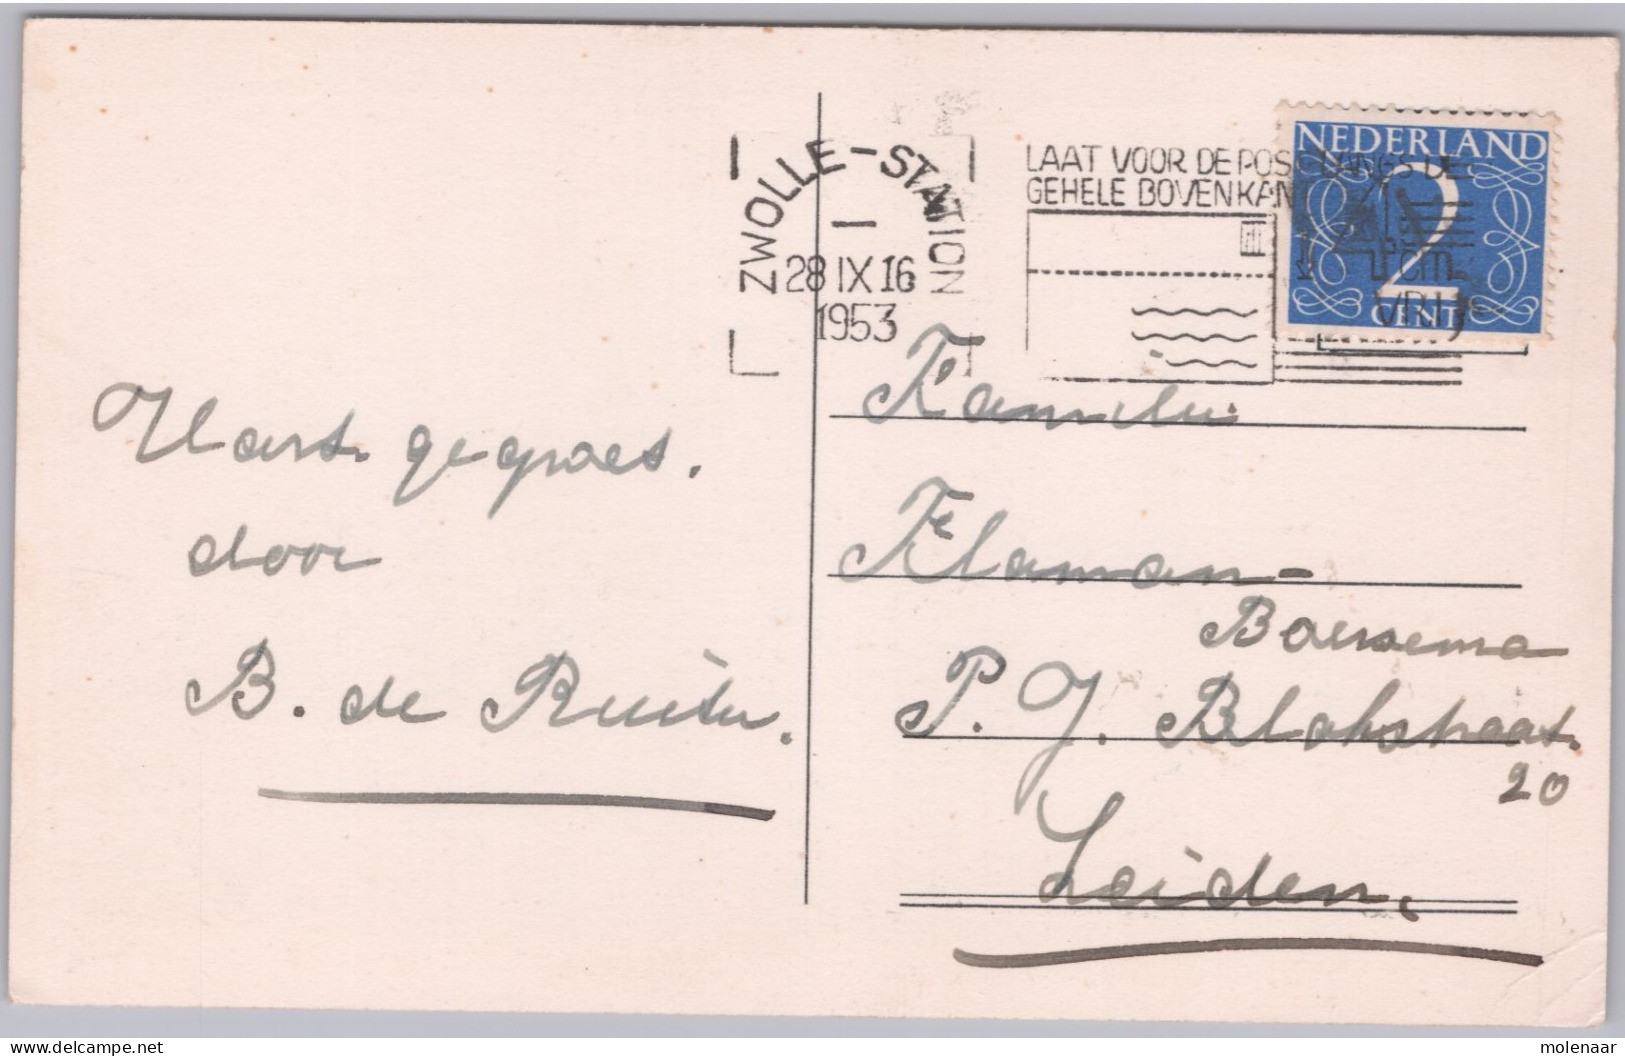 ZWOLLE-STATION
28 IX 16
1953
LAAT VOOR DE POST LANGS DE
GEHELE BOVENKANT
4 cm.
VRIJ
NEDERLAND
2
CENT
Hart. gegroet.
door
B. de Ruiter.
Familie
Flaman-
Boersema
P. J. Blokstraat.
20
Leiden.
delcampe.net
molenaar